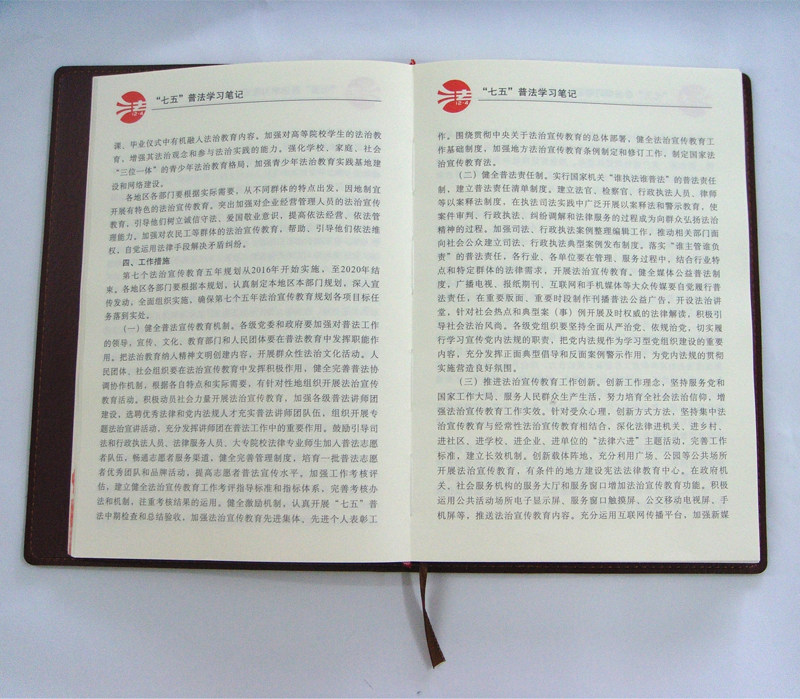 “七五”普法学习笔记
课、毕业仪式中有机融入法治教育内容。加强对高等院校学生的法治教
育，增强其法治观念和参与法治实践的能力。强化学校、家庭、社会
“三位一体”的青少年法治教育格局，加强青少年法治教育实践基地建
设和网络建设。
各地区各部门要根据实际需要，从不同群体的特点出发，因地制宜
开展有特色的法治宣传教育。突出加强对企业经营管理人员的法治宣传
教育，引导他们树立诚信守法、爱国敬业意识，提高依法经营、依法管
理能力。加强对农民工等群体的法治宣传教育，帮助、引导他们依法维
权，自觉运用法律手段解决矛盾纠纷。
四、工作措施
第七个法治宣传教育五年规划从2016年开始实施，至2020年结
束。各地区各部门要根据本规划，认真制定本地区本部门规划，深入宣
传发动，全面组织实施，确保第七个五年法治宣传教育规划各项目标任
务落到实处。
（一）健全普法宣传教育机制。各级党委和政府要加强对普法工作
的领导，宣传、文化、教育部门和人民团体要在普法教育中发挥职能作
用。把法治教育纳入精神文明创建内容，开展群众性法治文化活动。人
民团体、社会组织要在法治宣传教育中发挥积极作用，健全完善普法协
调协作机制，根据各自特点和实际需要，有针对性地组织开展法治宣传
教育活动。积极动员社会力量开展法治宣传教育，加强各级普法讲师团
建设，选聘优秀法律和党内法规人才充实普法讲师团队伍，组织开展专
题法治宣讲活动，充分发挥讲师团在普法工作中的重要作用。鼓励引导司
法和行政执法人员、法律服务人员、大专院校法律专业师生加入普法志愿
者队伍，畅通志愿者服务渠道，健全完善管理制度，培育一批普法志愿
者优秀团队和品牌活动，提高志愿者普法宣传水平。加强工作考核评
估，建立健全法治宣传教育工作考评指导标准和指标体系，完善考核办
法和机制，注重考核结果的运用。健全激励机制，认真开展“七五”普
法中期检查和总结验收，加强法治宣传教育先进集体、先进个人表彰工
“七五”普法学习笔记
作。围绕贯彻中央关于法治宣传教育的总体部署，健全法治宣传教育工
作基础制度，加强地方法治宣传教育条例制定和修订工作，制定国家法
治宣传教育法。
（二）健全普法责任制。实行国家机关“谁执法谁普法”的普法责任
制，建立普法责任清单制度。建立法官、检察官、行政执法人员、律师
等以案释法制度，在执法司法实践中广泛开展以案释法和警示教育，使
案件审判、行政执法、纠纷调解和法律服务的过程成为向群众弘扬法治
精神的过程。加强司法、行政执法案例整理编辑工作，推动相关部门面
向社会公众建立司法、行政执法典型案例发布制度。落实“谁主管谁负
责”的普法责任，各行业、各单位要在管理、服务过程中，结合行业特
点和特定群体的法律需求，开展法治宣传教育。健全媒体公益普法制
度，广播电视、报纸期刊、互联网和手机媒体等大众传媒要自觉履行普
法责任，在重要版面、重要时段制作刊播普法公益广告，开设法治讲
堂，针对社会热点和典型案（事）例开展及时权威的法律解读，积极引
导社会法治风尚。各级党组织要坚持全面从严治党、依规治党，切实履
行学习宣传党内法规的职责，把党内法规作为学习型党组织建设的重要
内容，充分发挥正面典型倡导和反面案例警示作用，为党内法规的贯彻
实施营造良好氛围。
（三）推进法治宣传教育工作创新。创新工作理念，坚持服务党和
国家工作大局、服务人民群众生产生活，努力培育全社会法治信仰，增
强法治宣传教育工作实效。针对受众心理，创新方式方法，坚持集中法
治宣传教育与经常性法治宣传教育相结合，深化法律进机关、进乡村、
进社区、进学校、进企业、进单位的“法律六进”主题活动，完善工作
标准，建立长效机制。创新载体阵地，充分利用广场、公园等公共场所
开展法治宣传教育，有条件的地方建设宪法法律教育中心。在政府机
关、社会服务机构的服务大厅和服务窗口增加法治宣传教育功能。积极
运用公共活动场所电子显示屏、服务窗口触摸屏、公交移动电视屏、手
机屏等，推送法治宣传教育内容。充分运用互联网传播平台，加强新媒